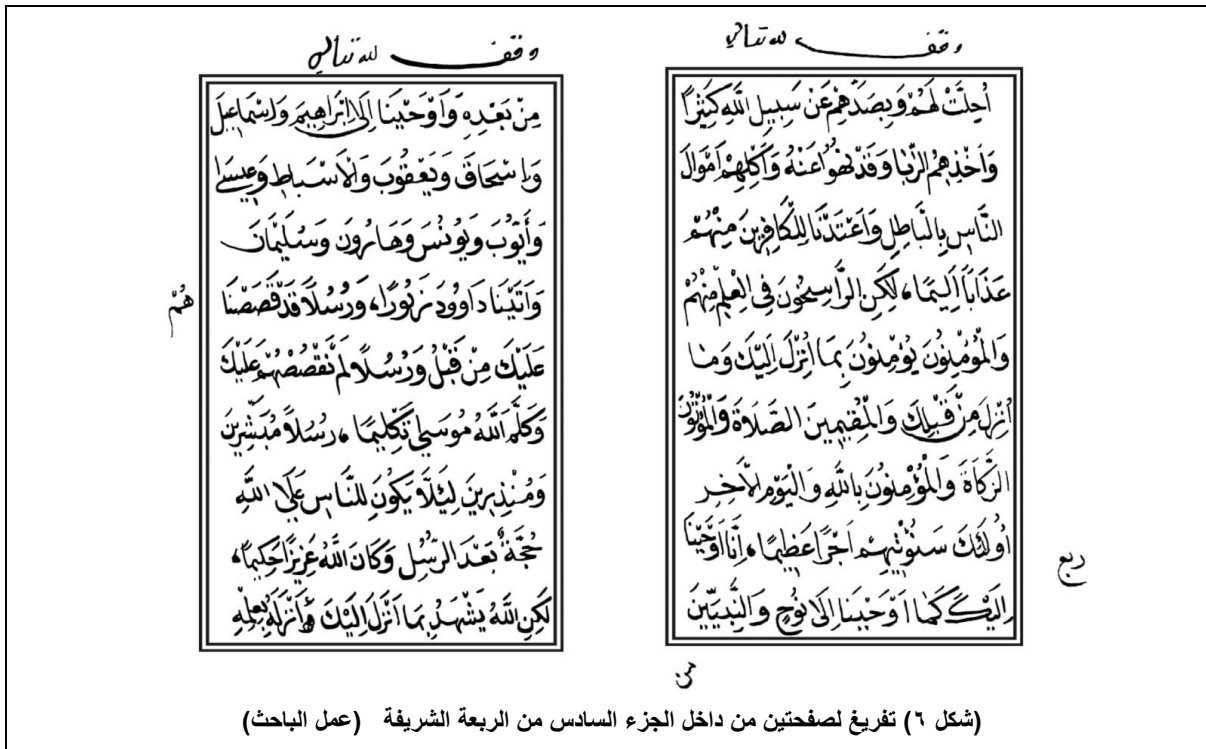 وقف لله تعالى
اُحِلَّتْ لَهُمْ وَبِصَدِّهِمْ عَنْ سَبِيلِ اللَّهِ كَثِيرًا
وَاَخْذِهِمُ الرِّبَا وَقَدْ نُهُوا عَنْهُ وَاَكْلِهِمْ اَمْوَالَ
النَّاسِ بِالْبَاطِلِ وَاَعْتَدْنَا لِلْكَافِرِينَ مِنْهُمْ
عَذَابًا اَلِيمًا، لَكِنِ الرَّاسِخُونَ فِى الْعِلْمِ مِنْهُمْ
وَالْمُؤْمِنُونَ يُؤْمِنُونَ بِمَا اُنْزِلَ اِلَيْكَ وَمَا
اُنْزِلَ مِنْ قَبْلِكَ وَالْمُقِيمِينَ الصَّلَاةَ وَالْمُؤْتُونَ
الزَّكَاةَ وَالْمُؤْمِنُونَ بِاللَّهِ وَالْيَوْمِ الْآخِرِ
اُولَئِكَ سَنُؤْتِيهِمْ اَجْرًا عَظِيمًا، اِنَّا اَوْحَيْنَا
ربع
اِلَيْكَ كَمَا اَوْحَيْنَا اِلَى نُوحٍ وَالنَّبِيِّينَ
من
وقف لله تعالى
مِنْ بَعْدِهِ وَاَوْحَيْنَا اِلَى اِبْرَاهِيمَ وَاِسْمَاعِيلَ
وَاِسْحَاقَ وَيَعْقُوبَ وَالْاَسْبَاطِ وَعِيسَى
وَأَيُّوبَ وَيُونُسَ وَهَارُونَ وَسُلَيْمَانَ
وَاَتَيْنَا دَاوُودَ زَبُورًا، وَرُسُلًا قَدْ قَصَصْنَا
هُمْ
عَلَيْكَ مِنْ قَبْلُ وَرُسُلًا لَمْ نَقْصُصْهُمْ عَلَيْكَ
وَكَلَّمَ اللَّهُ مُوسَى تَكْلِيمًا، رُسُلًا مُبَشِّرِينَ
وَمُنْذِرِينَ لِيَلَّا يَكُونَ لِلنَّاسِ عَلَى اللَّهِ
حُجَّةٌ بَعْدَ الرُّسُلِ وَكَانَ اللَّهُ عَزِيزًا حَكِيمًا،
لَكِنِ اللَّهُ يَشْهَدُ بِمَا اَنْزَلَ اِلَيْكَ اَنْزَلَهُ بِعِلْمِهِ
(شكل ٦) تفريغ لصفحتين من داخل الجزء السادس من الربعة الشريفة (عمل الباحث)